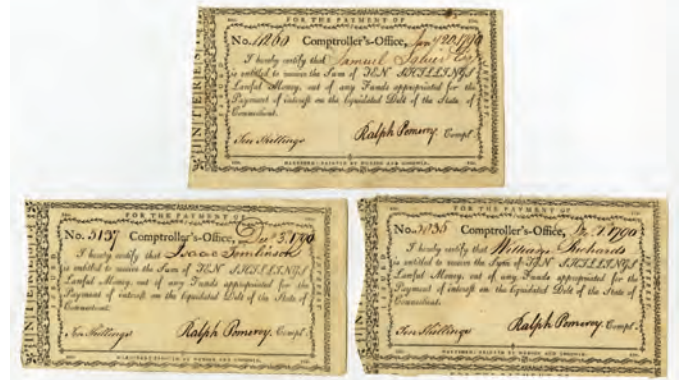 FOR THE PAYMENT OF
No. 11260 Comptroller's-Office, Jany 20 1790
I hereby certify that Samuel Squier Esq
is entitled to receive the Sum of TEN SHILLINGS
Lawful Money, out of any Funds appropriated for the
Payment of interest on the liquidated Debt of the State of
Connecticut.
Ten Shillings Ralph Pomeroy, Compt.
HARTFORD: PRINTED BY HUDSON AND GOODWIN.
INTEREST
FOR THE PAYMENT OF
No. 5137 Comptroller's-Office, Decr 3. 1790
I hereby certify that Isaac Tomlinson
is entitled to receive the Sum of TEN SHILLINGS
Lawful Money, out of any Funds appropriated for the
Payment of interest on the liquidated Debt of the State of
Connecticut.
Ten Shillings Ralph Pomeroy, Compt.
HARTFORD: PRINTED BY HUDSON AND GOODWIN.
INTEREST
FOR THE PAYMENT OF
No. Comptroller's-Office, 1790
I hereby certify that William Richards
is entitled to receive the Sum of TEN SHILLINGS
Lawful Money, out of any Funds appropriated for the
Payment of interest on the liquidated Debt of the State of
Connecticut.
Ten Shillings Ralph Pomeroy, Compt.
HARTFORD: PRINTED BY HUDSON AND GOODWIN.
INTEREST